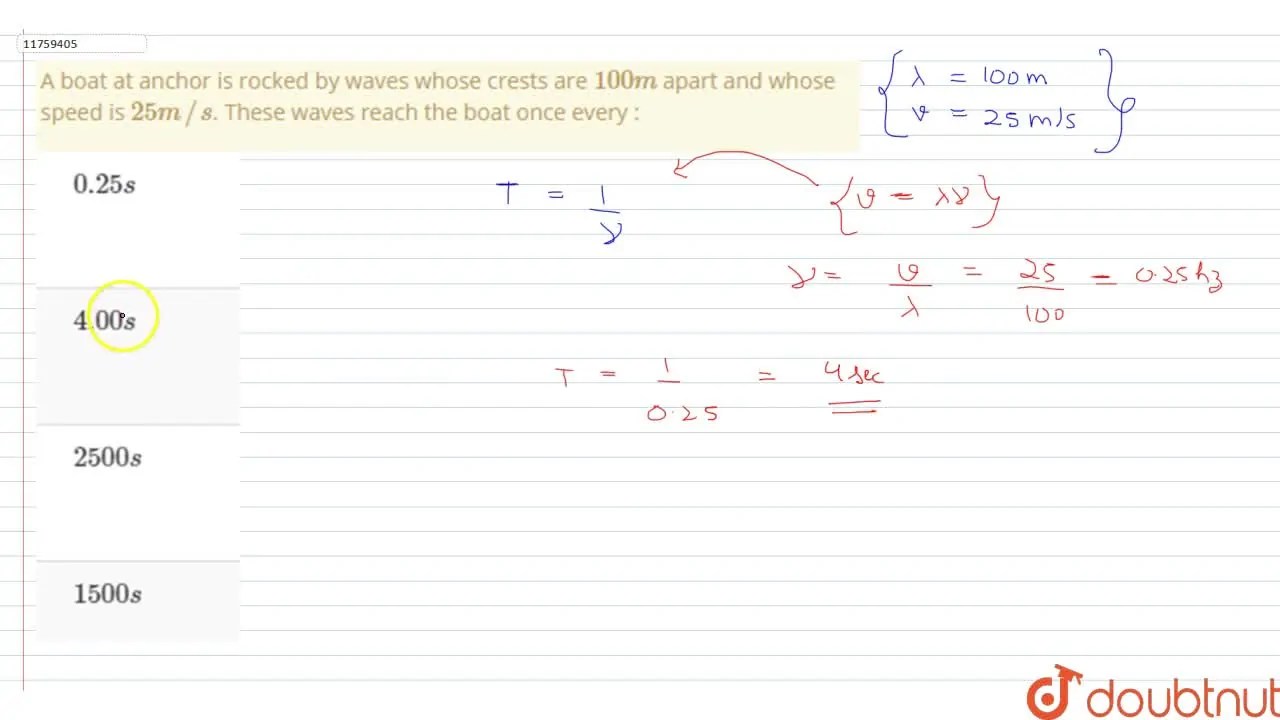 11759405
A boat at anchor is rocked by waves whose crests are 100m apart and whose
speed is 25m/s. These waves reach the boat once every :
λ = 100m
v = 25 m/s
0.25s
T = 1/ν
v = λν
ν = v/λ = 25/100 = 0.25 hz
4.00s
T = 1/0.25 = 4 sec
2500s
1500s
doubtnut